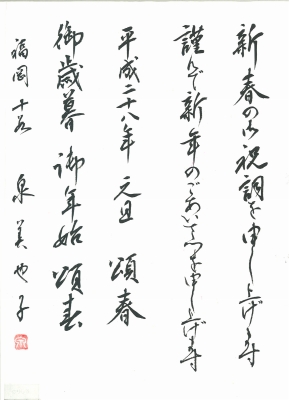 新春の御祝詞を申し上げます
謹んで新年のごあいさつを申し上げます
平成二十八年 元旦 頌春
御歳暮 御年始 頌春
福岡 十段 泉 美也子